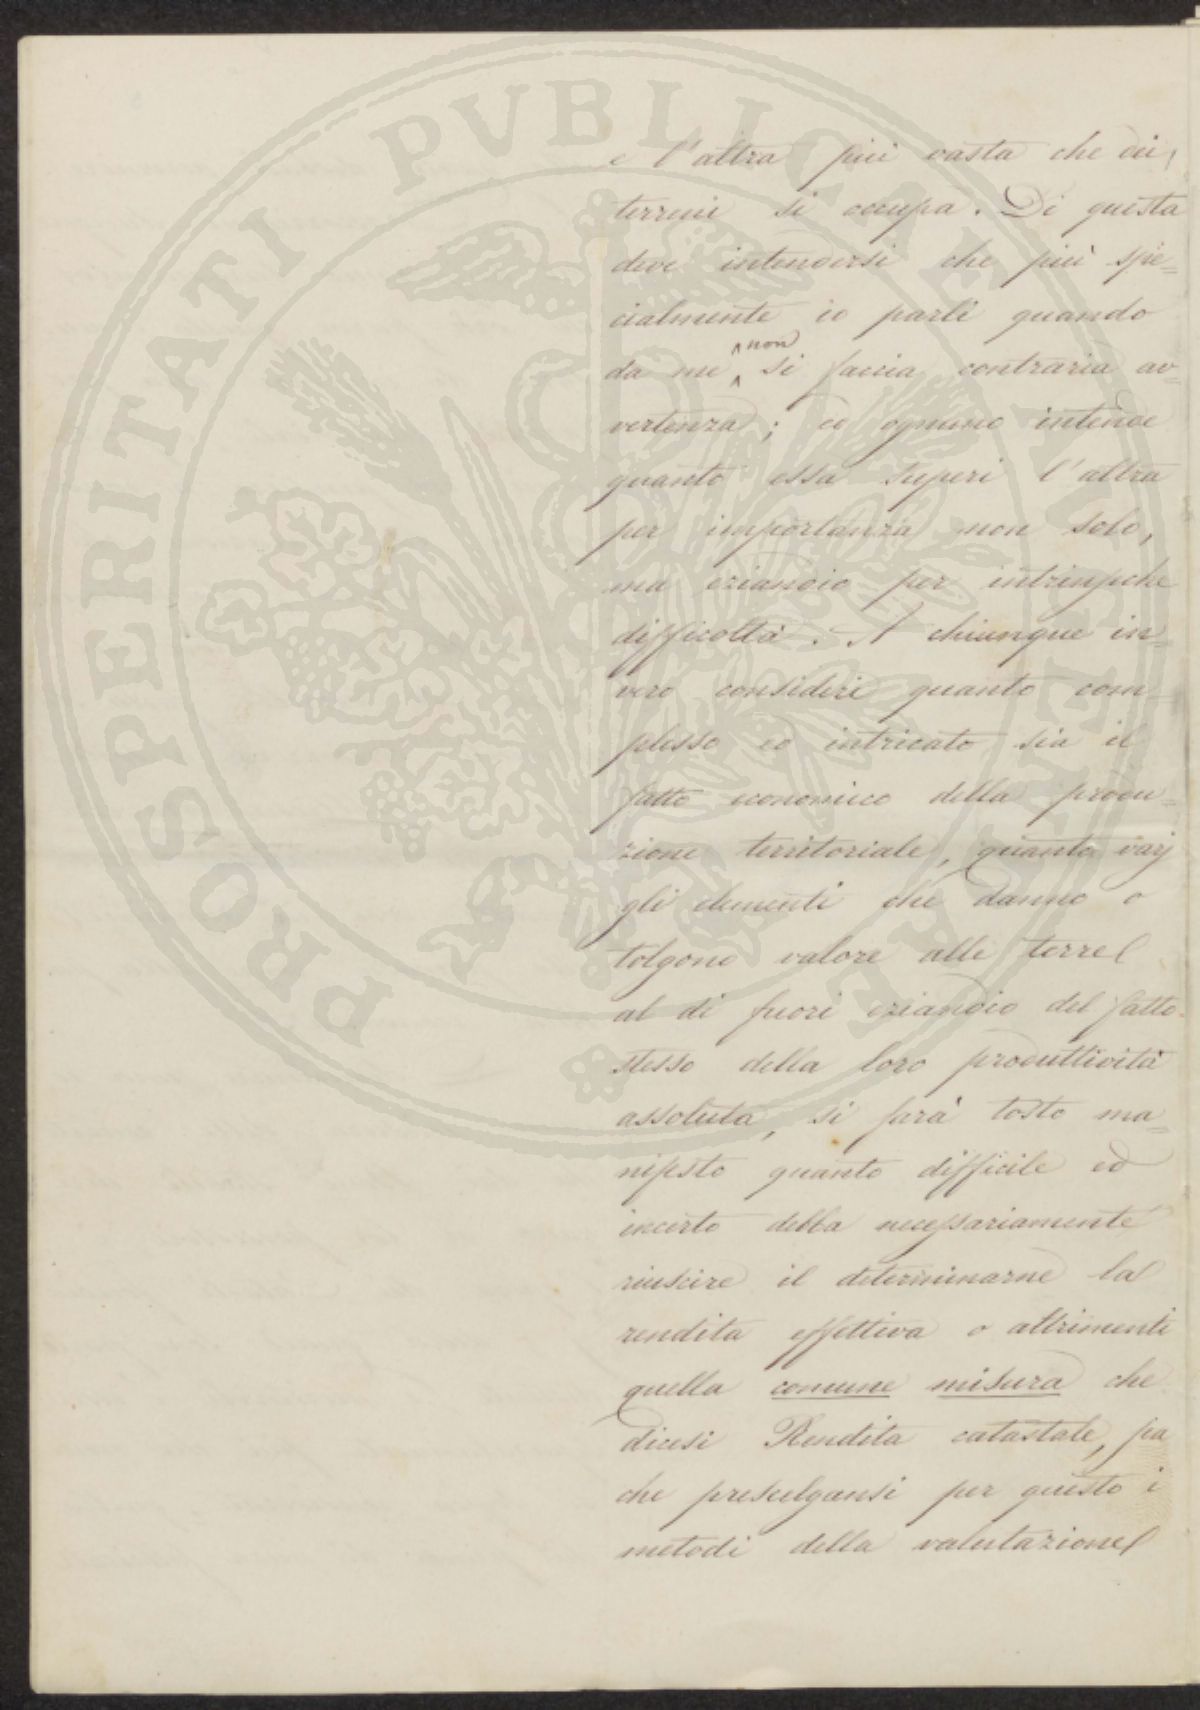 e l'altra più vasta che dei
terreni si occupa. Di questa
deve intendersi che più spe=
cialmente io parli quando
da me non si faccia contraria av=
vertenza; ed ognuno intende
quanto essa superi l'altra
per importanza non solo,
ma eziandio per intrinseche
difficoltà. A chiunque in=
vero consideri quanto com=
plesso ed intricato sia il
fatto economico della produ=
zione territoriale, quanto varj
gli elementi che danno o
tolgono valore alle terre
al di fuori eziandio del fatto
stesso della loro produttività
assoluta, si farà tosto ma=
nifesto quanto difficile ed
incerto debba necessariamente
riuscire il determinarne la
rendita effettiva o altrimenti
quella comune misura che
dicesi Rendita catastale,
che prescelgansi per questo i
metodi della valutazione
PROSPERITATI PUBLICAE AUGENDAE